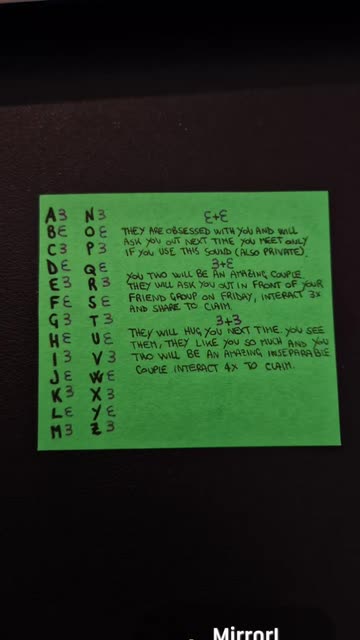 A3 N3
BƐ OƐ
C3 P3
DƐ QƐ
E3 R3
FƐ SƐ
G3 T3
HƐ UƐ
I3 V3
JƐ WƐ
K3 X3
LƐ YƐ
M3 Z3
Ɛ+Ɛ
THEY ARE OBSESSED WITH YOU AND WILL
ASK YOU OUT NEXT TIME YOU MEET ONLY
IF YOU USE THIS SOUND (ALSO PRIVATE).
3+Ɛ
YOU TWO WILL BE AN AMAZING COUPLE
THEY WILL ASK YOU OUT IN FRONT OF YOUR
FRIEND GROUP ON FRIDAY, INTERACT 3X
AND SHARE TO CLAIM.
3+3
THEY WILL HUG YOU NEXT TIME YOU SEE
THEM, THEY LIKE YOU SO MUCH AND YOU
TWO WILL BE AN AMAZING INSEPARABLE
COUPLE INTERACT 4X TO CLAIM.
Mirror!